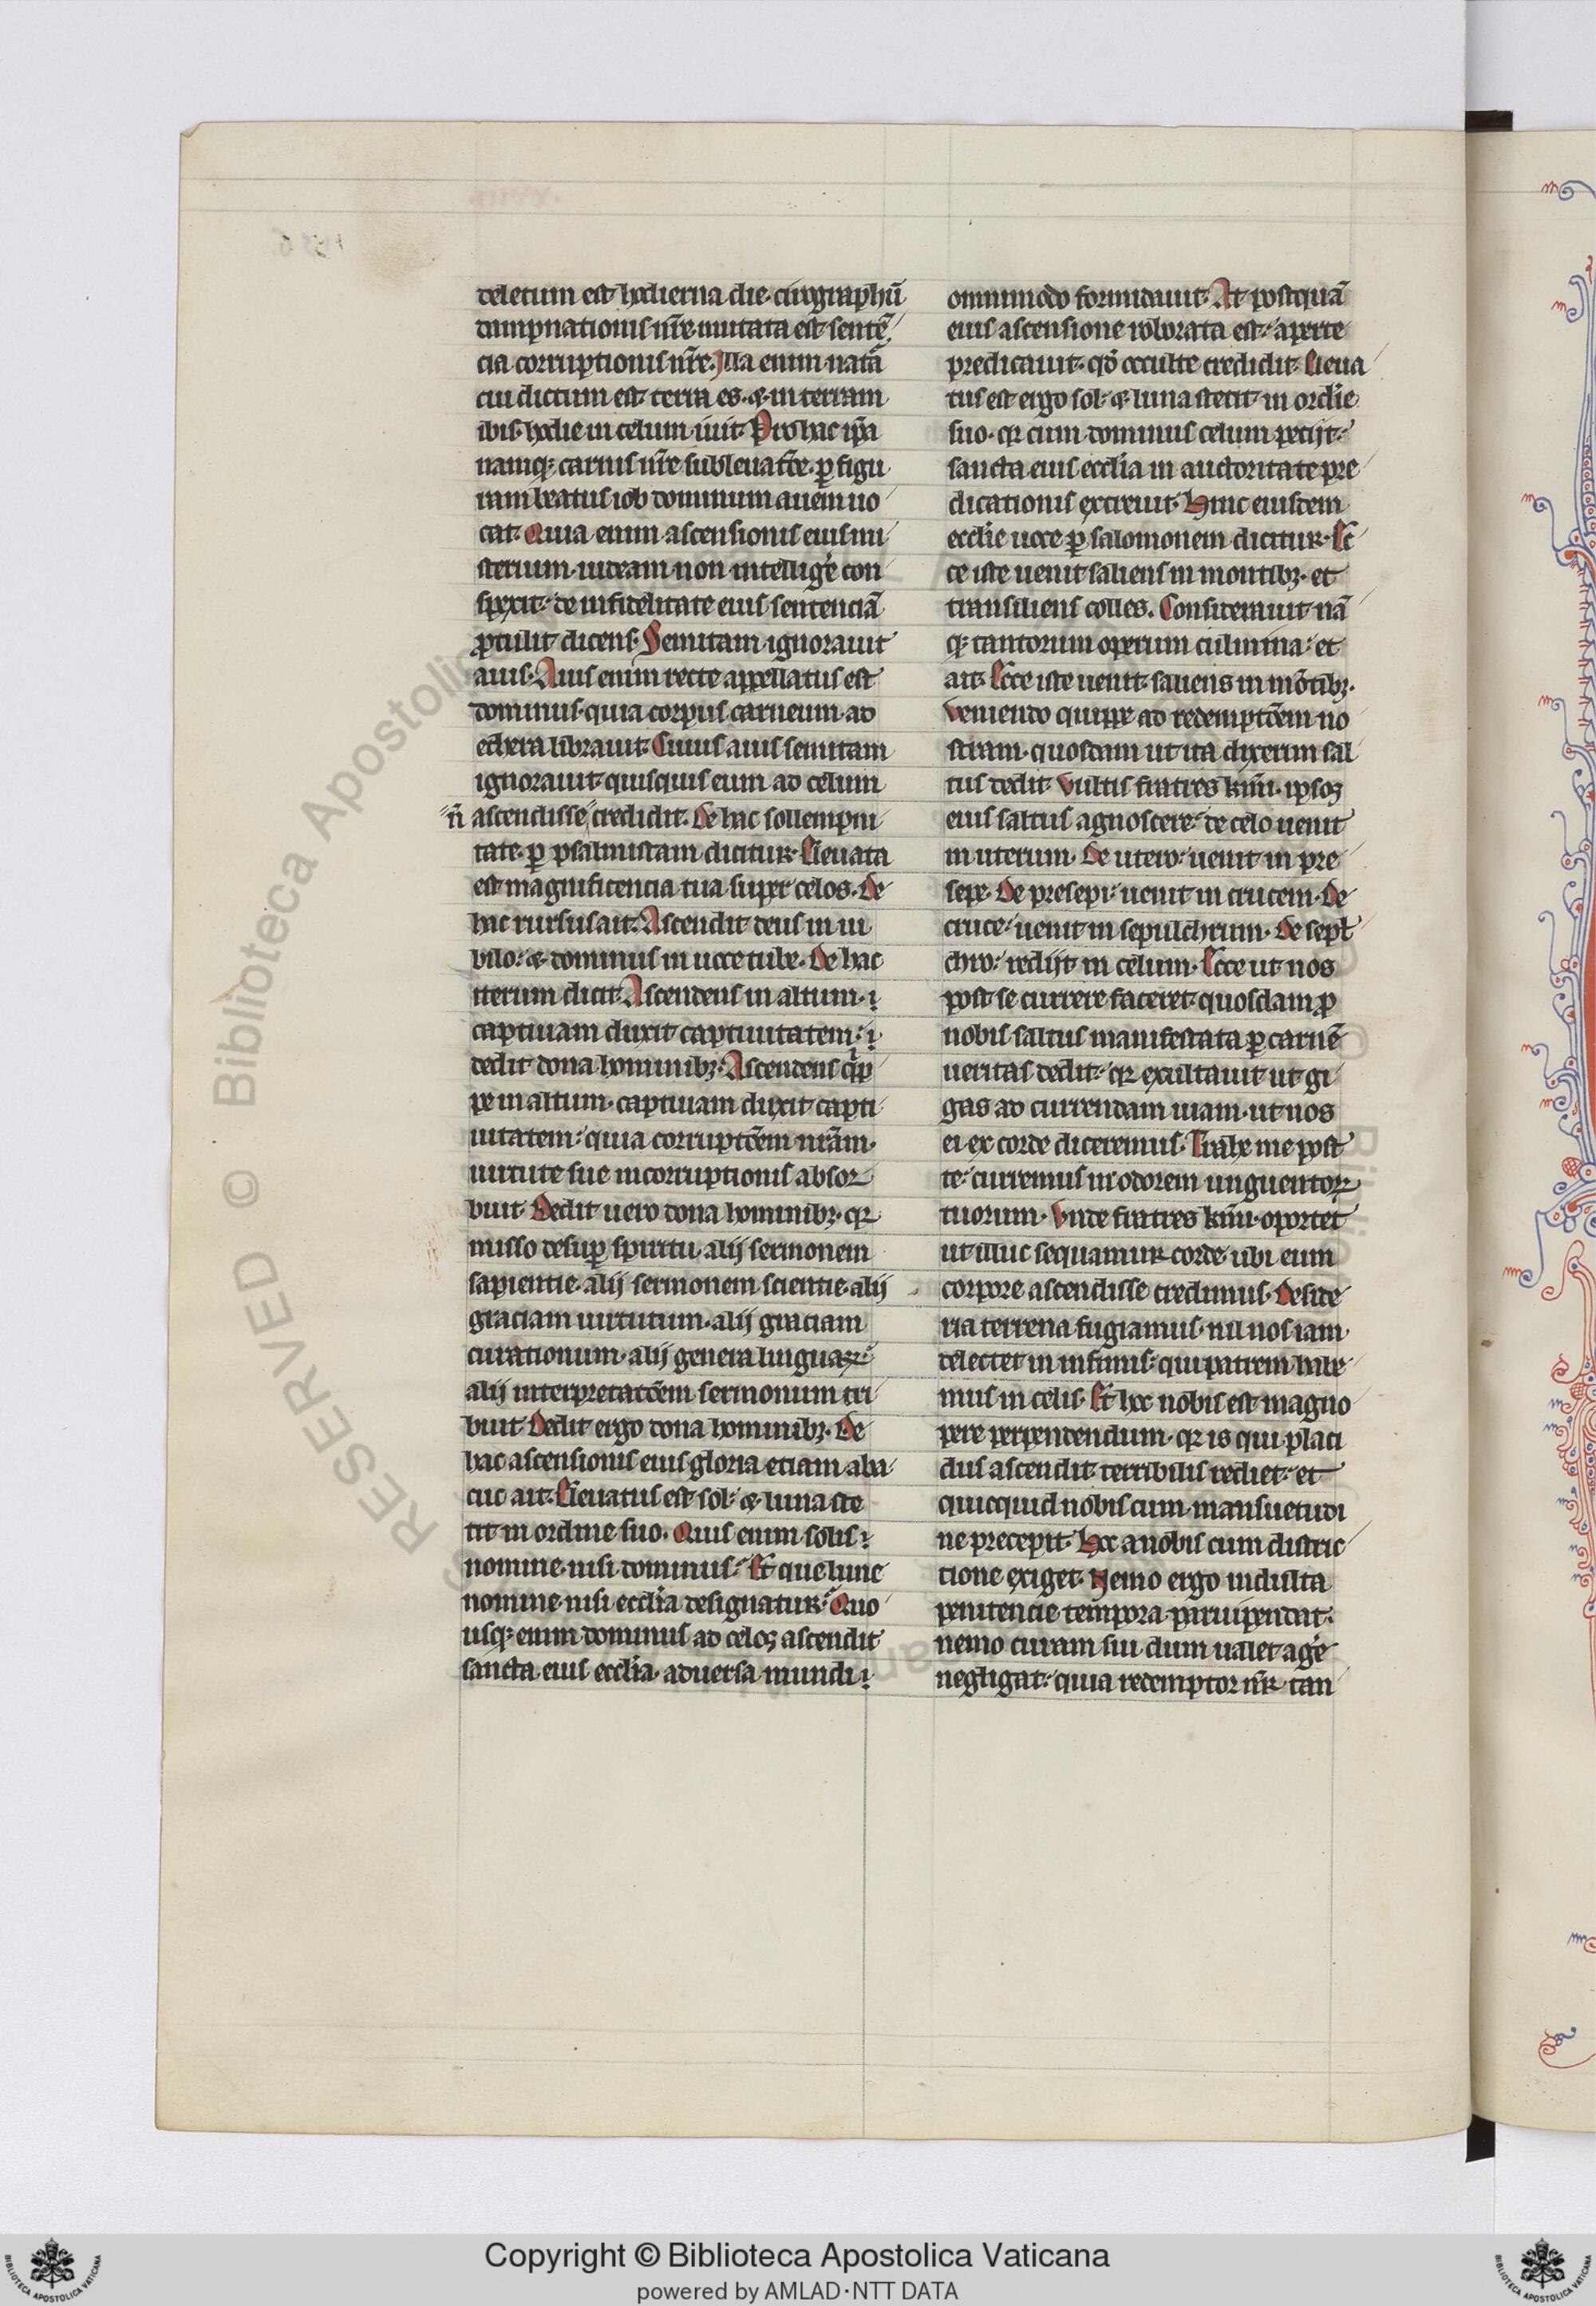 deletum est hodierna die. cirographū
dampnationis nr̄e. mutata est sentē
cia corruptionis nr̄e. Illa enim natā
cui dictum est terra es. ⁊ in terram
ibis. hodie in celum iuit. Pro hac ip̄a
namq; carnis nr̄e subleuat̄oe. ꝑ figu
ram beatus iob dominum auem uo
cat. Quia enim ascensionis eius mi
sterium. iudeam non intelliḡe con
spexit. de infidelitate eius sentenciā
ꝓtulit dicens. Semitam ignorauit
auis. Auis enim recte appellatus est
dominus. quia corpus carneum. ad
ethera librauit. Cuius auis semitam
ignorauit. quisquis eum ad celum
n̄ ascendisse credidit. De hac sollempni
tate. ꝑ psalmistam dicitur. Eleuata
est magnificencia tua super celos. De
hac rursus ait. Ascendit deus in iu
bilo. ⁊ dominus in uoce tube. De hac
iterum dicit. Ascendens in altum.
captiuam duxit captiuitatem.
dedit dona hominibꝫ. Ascendens qip
pe in altum. captiuam duxit capti
uitatem. quia corrupt̄oem nr̄am.
uirtute sue incorruptionis absor
buit. Dedit uero dona hominibꝫ. qꝛ
misso desuꝑ spiritu. alij sermonem
sapientie. alij sermonem scientie. alij
graciam uirtutum. alij graciam
curationum. alij genera linguaꝝ.
alij interpretat̄oem sermonum tri
buit. Dedit ergo dona hominibꝫ. De
hac ascensionis eius gloria etiam aba
cuc ait. Eleuatus est sol. ⁊ luna ste
tit in ordine suo. Quis enim solis
nomine. nisi dominus. Et que lune
nomine. nisi eccl̄ia designatur. Quo
usq; enim dominus ad celos ascendit
sancta eius eccl̄ia. aduersa mundi
omnimodo formidauit. At postquā
eius ascensione roborata est. aperte
predicauit. qō occulte credidit. Eleua
tus est ergo sol. ⁊ luna stetit in ordīe
suo. qꝛ cum dominus celum petijt.
sancta eius eccl̄ia in auctoritate pre
dicationis excreuit. Hinc eiusdem
eccl̄ie uoce ꝑ salomonem dicitur. Ec
ce iste uenit saliens in montibꝫ. et
transiliens colles. Considerauit nā
q; tantorum operum culmina. et
ait. Ecce iste uenit. saliens in mōtibꝫ.
Veniendo quippe ad redempt̄oem no
stram. quosdam ut ita dixerim sal
tus dedit. Vultis fratres kmi. ipsos
eius saltus agnoscere. de celo uenit
in uterum. De utero. uenit in pre
sepe. De presepi. uenit in crucem. De
cruce. uenit in sepulchrum. De sepul
chro. redijt in celum. Ecce ut nos
post se currere faceret. quosdam ꝓ
nobis saltus manifestata ꝑ carnē
ueritas dedit. qꝛ exultauit ut gi
gas ad currendam uiam. ut nos
ei ex corde diceremus. Trahe me post
te. curremus in odorem unguentoꝝ
tuorum. Vnde fratres kmi. oportet
ut illuc sequamur corde. ubi eum
corpore ascendisse credimus. Deside
ria terrena fugiamus. nil nos iam
delectet in infimis. qui patrem habe
mus in celis. Et hoc nobis est magno
pere perpendendum. qꝛ is qui placi
dus ascendit. terribilis rediet. et
quicquid nobis cum mansuetudi
ne precepit. Hoc a nobis cum distric
tione exiget. Nemo ergo indulta
penitencie tempora paruipendat.
nemo curam sui dum ualet aḡe
negligat. quia redemptor nr̄. tan
RESERVED © Biblioteca Apostolica
Copyright © Biblioteca Apostolica Vaticana
powered by AMLAD·NTT DATA
BIBLIOTECA APOSTOLICA VATICANA
BIBLIOTECA APOSTOLICA VATICANA